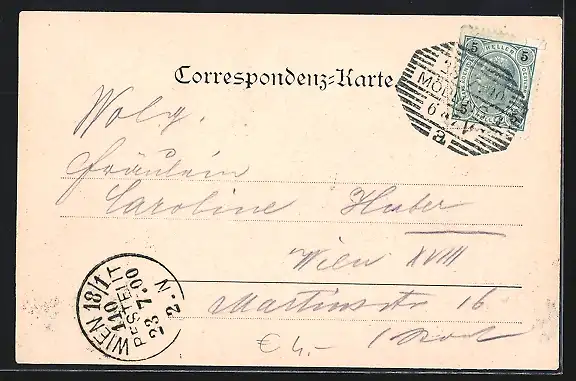 Correspondenz-Karte
5 HELLER 5
MÖ
6
a
Wolg.
Fräulein
Caroline Huber
Wien XVIII
Martinstr 16
€ 4.-
WIEN 18/1
110
BESTELLT
23 7.00
2. N